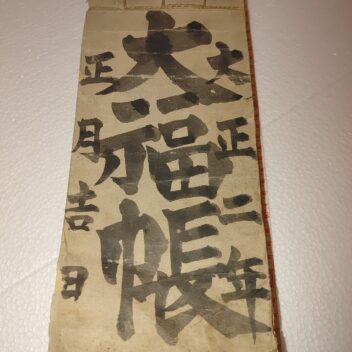 大正二年
大福帳
正月吉日